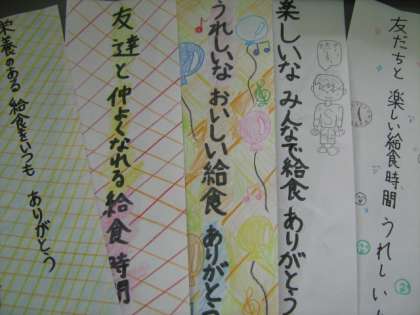 友だちと 楽しい給食時間 うれしい
楽しいな みんなで給食 ありがとう
うれしいな おいしい給食 ありがとう
友達と 仲よくなれる 給食時間
栄養のある 給食をいつも ありがとう